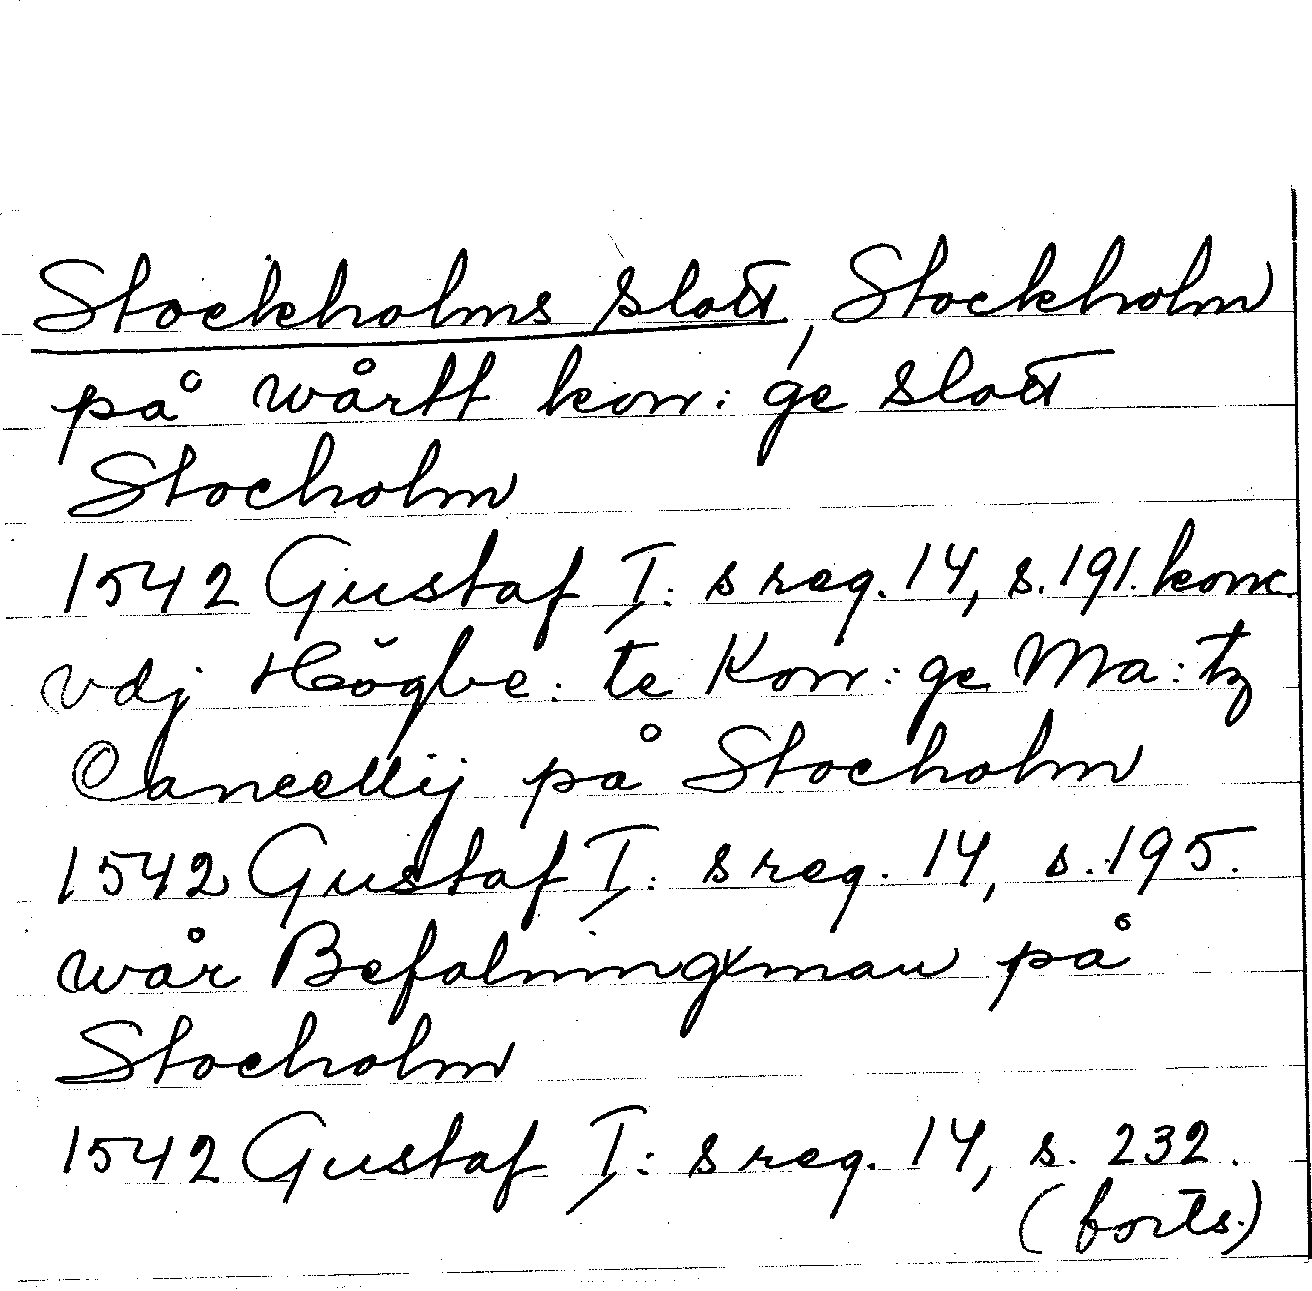 Stockholms slott, Stockholm
på wårtt kon: ge slott
Stocholm
1542 Gustaf I: s reg. 14, s. 191. konc.
vdj Högbe: te Kon: ge Ma: tz
Cancellij på Stocholm
1542 Gustaf I: s reg. 14, s. 195.
wår Befalningxman på
Stocholm
1542 Gustaf I: s reg. 14, s. 232.
(forts.)